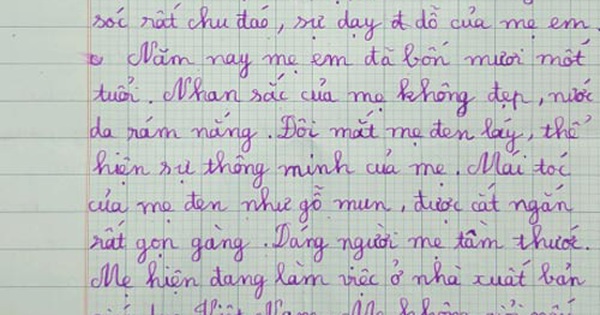 sóc rất chu đaó, sự dạy dỗ của mẹ em.
Năm nay mẹ em đã bốn mươi một
tuổi. Nhan sắc của mẹ không đẹp, nước
da rám nắng. Đôi mắt mẹ đen láy, thể
hiện sự thông minh của mẹ. Mái tóc
của mẹ đen như gỗ mun, được cắt ngắn
rất gọn gàng. Dáng người mẹ tầm thước.
Mẹ hiện đang làm việc ở nhà xuất bản
Việt Nam. Mẹ không